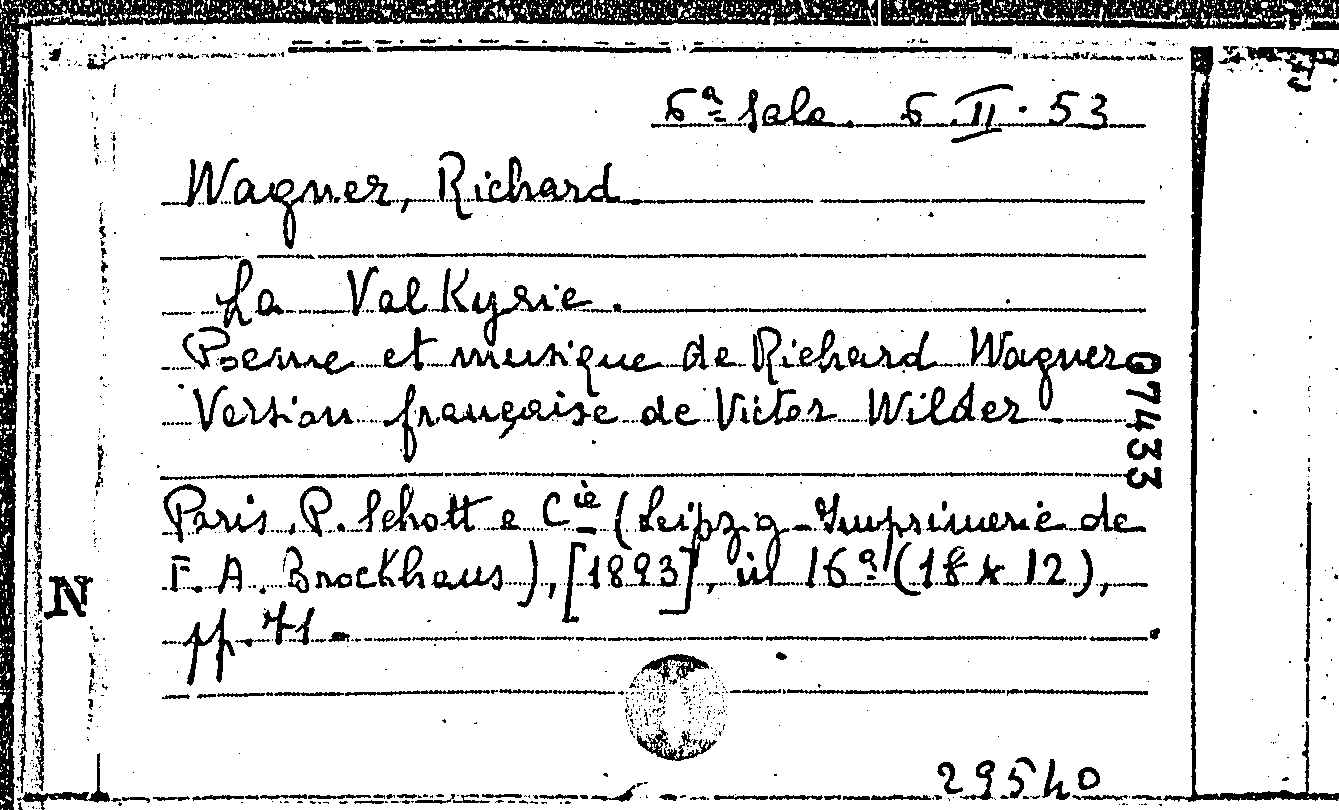 6ª Sala. 6.II.53
Wagner, Richard.
La Valkyrie.
Poeme et musique de Richard Wagner
Version française de Victor Wilder
07433
Paris, P. Schott e Cie (Leipzig-Imprimerie de
F. A. Brockhaus), [1893], in 16º (18 x 12),
N
pp. 71.
29540